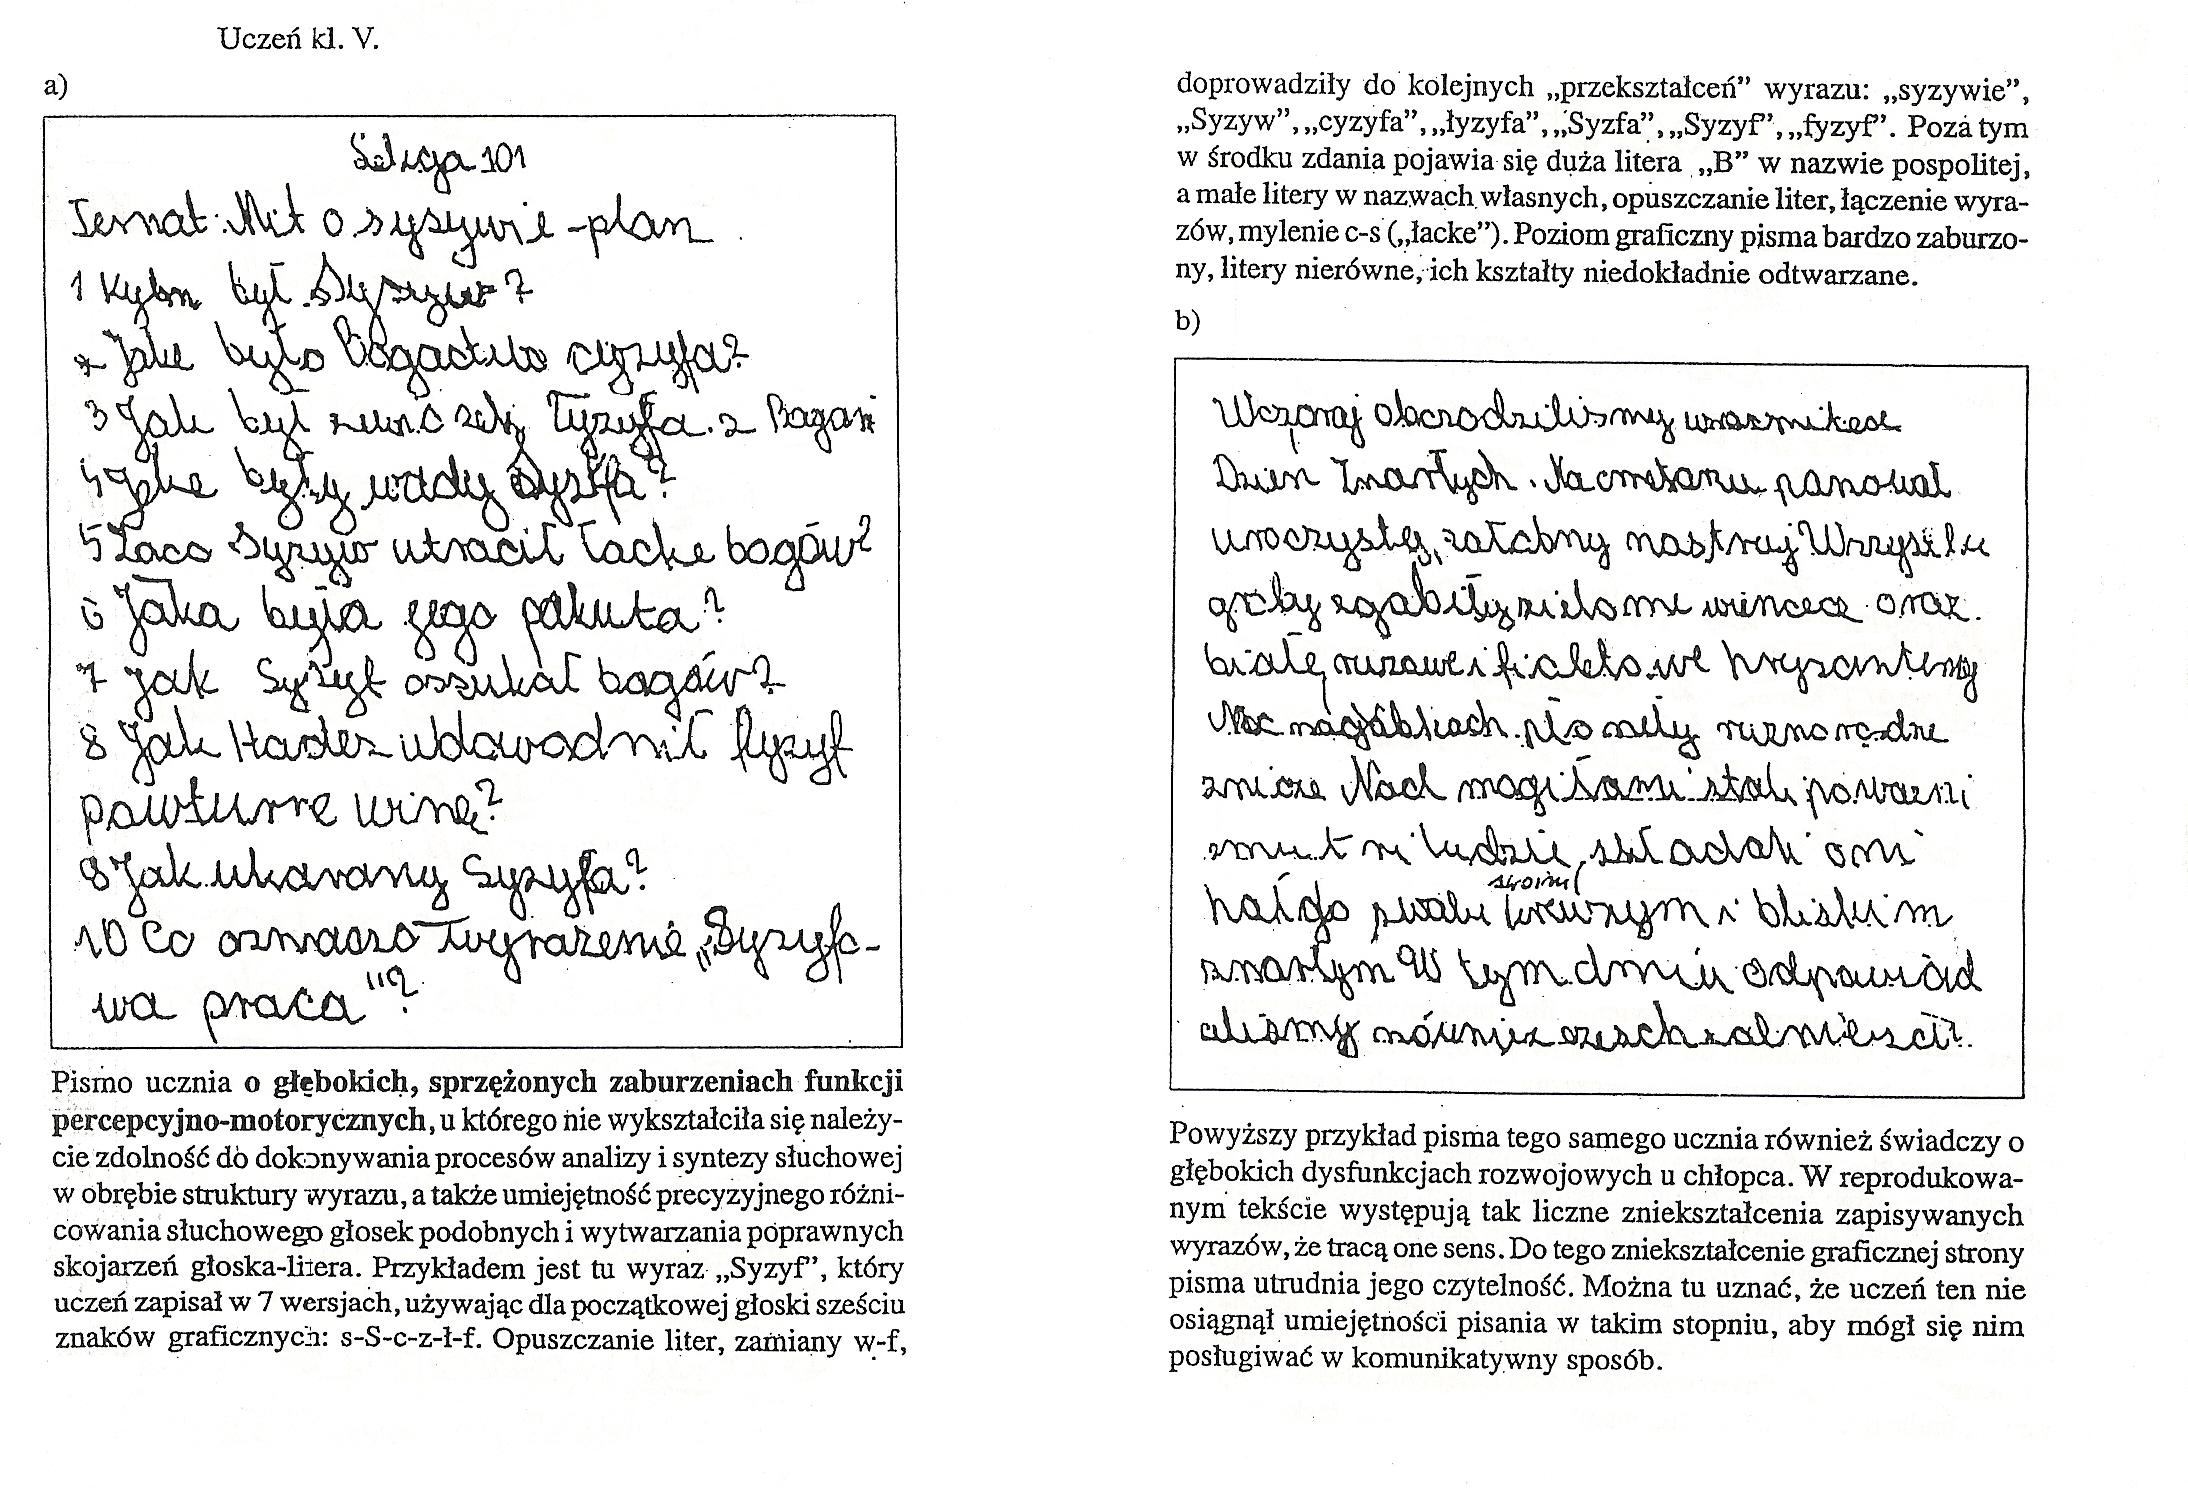 Uczeń kl. V.
a)
101
Temat: Mit o sysywie - plan
1 Kym był Syzyw?
Jake było Bogactwo cyzyfa?
3 Jak był Łyzyfa. z Bogami
4 Jake były wady Syzfa?
5 Zaco Syzyw utracił łacke bogów?
6 Jaka była jego pokuta?
7 jak Syzyf oszukał bogów?
8 Jak Hades udowodnił fyzyf
powturne winę?
9 Jak ukarany Syzyfa?
10 Co oznaczo wyrażenie „Syzyfo-
wa praca"?
Pismo ucznia o głębokich, sprzężonych zaburzeniach funkcji
percepcyjno-motorycznych, u którego nie wykształciła się należy-
cie zdolność do dokonywania procesów analizy i syntezy słuchowej
w obrębie struktury wyrazu, a także umiejętność precyzyjnego różni-
cowania słuchowego głosek podobnych i wytwarzania poprawnych
skojarzeń głoska-litera. Przykładem jest tu wyraz „Syzyf”, który
uczeń zapisał w 7 wersjach, używając dla początkowej głoski sześciu
znaków graficznych: s-S-c-z-ł-f. Opuszczanie liter, zamiany w-f,
doprowadziły do kolejnych „przekształceń” wyrazu: „syzywie”,
„Syzyw”, „cyzyfa”, „łyzyfa”, „Syzfa”, „Syzyf”, „fyzyf”. Poza tym
w środku zdania pojawia się duża litera „B” w nazwie pospolitej,
a małe litery w nazwach własnych, opuszczanie liter, łączenie wyra-
zów, mylenie c-s („łacke”). Poziom graficzny pisma bardzo zaburzo-
ny, litery nierówne, ich kształty niedokładnie odtwarzane.
b)
Wczoraj
Dzień Zmarłych. Na panował
uroczysty, nastruj
oraz
białe,
Na
znicze Nad mogiłami stali
ludzie, składali oni
swoim
i bliskim
zmarłym W tym dniu odpowiad
aliśmy również
Powyższy przykład pisma tego samego ucznia również świadczy o
głębokich dysfunkcjach rozwojowych u chłopca. W reprodukowa-
nym tekście występują tak liczne zniekształcenia zapisywanych
wyrazów, że tracą one sens. Do tego zniekształcenie graficznej strony
pisma utrudnia jego czytelność. Można tu uznać, że uczeń ten nie
osiągnął umiejętności pisania w takim stopniu, aby mógł się nim
posługiwać w komunikatywny sposób.